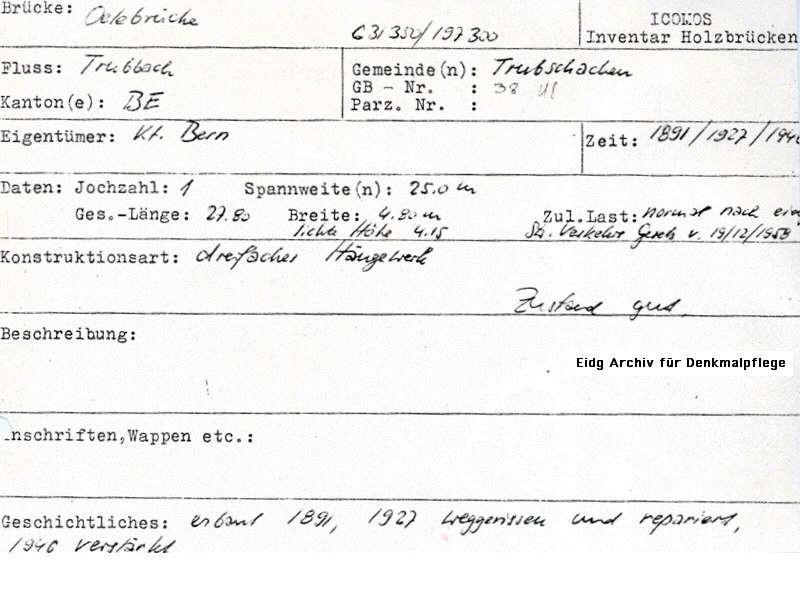 Brücke: Oelebrücke
631 350/197 300
ICOMOS
Inventar Holzbrücken
Fluss: Trubbach
Gemeinde(n): Trubschachen
GB - Nr. : 38
Kanton(e): BE
Parz. Nr. :
Eigentümer: Kt. Bern
Zeit: 1891/1927/194
Daten: Jochzahl: 1 Spannweite(n): 25.0 m
Ges.-Länge: 27.80 Breite: 4.80 m Zul.Last: normal nach eid
lichte Höhe 4.15 Verkehrs Gesetz v. 19/12/1958
Konstruktionsart: dreifaches Hängewerk
Zustand gut.
Beschreibung:
Eidg Archiv für Denkmalpflege
nschriften,Wappen etc.:
Geschichtliches: erbaut 1891, 1927 weggerissen und repariert,
1946 verstärkt